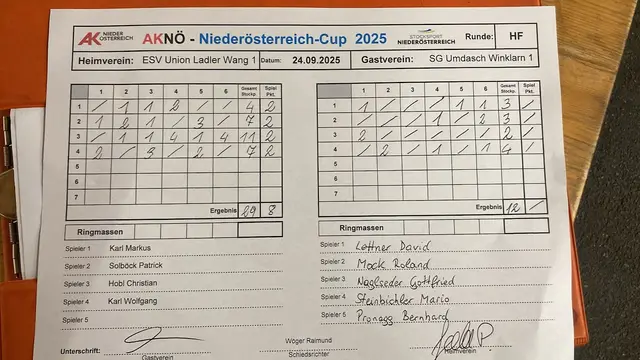 AK NIEDER ÖSTERREICH AKNÖ - Niederösterreich-Cup 2025 STOCKSPORT NIEDERÖSTERREICH Runde: HF
Heimverein: ESV Union Ladler Wang 1 Datum: 24.09.2025 Gastverein: SG Umdasch Winklarn 1
1 2 3 4 5 6 Gesamt Stockp. Spiel Pkt.
1 / 1 1 2 / / 4 2
2 1 2 1 / 3 / 7 2
3 / 1 1 4 1 4 11 2
4 2 / 3 / 2 / 7 2
5
6
7
Ergebnis 29 8
Ringmassen
Spieler 1 Karl Markus
Spieler 2 Solböck Patrick
Spieler 3 Hobl Christian
Spieler 4 Karl Wolfgang
Spieler 5
1 2 3 4 5 6 Gesamt Stockp. Spiel Pkt.
1 1 / / / 1 1 3 /
2 / / / 1 / 2 3 /
3 2 / / / / / 2 /
4 / 2 / / 1 1 4 /
5
6
7
Ergebnis 12 /
Ringmassen
Spieler 1 Lettner David
Spieler 2 Mock Roland
Spieler 3 Naglseder Gottfried
Spieler 4 Steinbichler Mario
Spieler 5 Pronegg Bernhard
Unterschrift: Wöger Raimund
Gastverein Schiedsrichter Heimverein